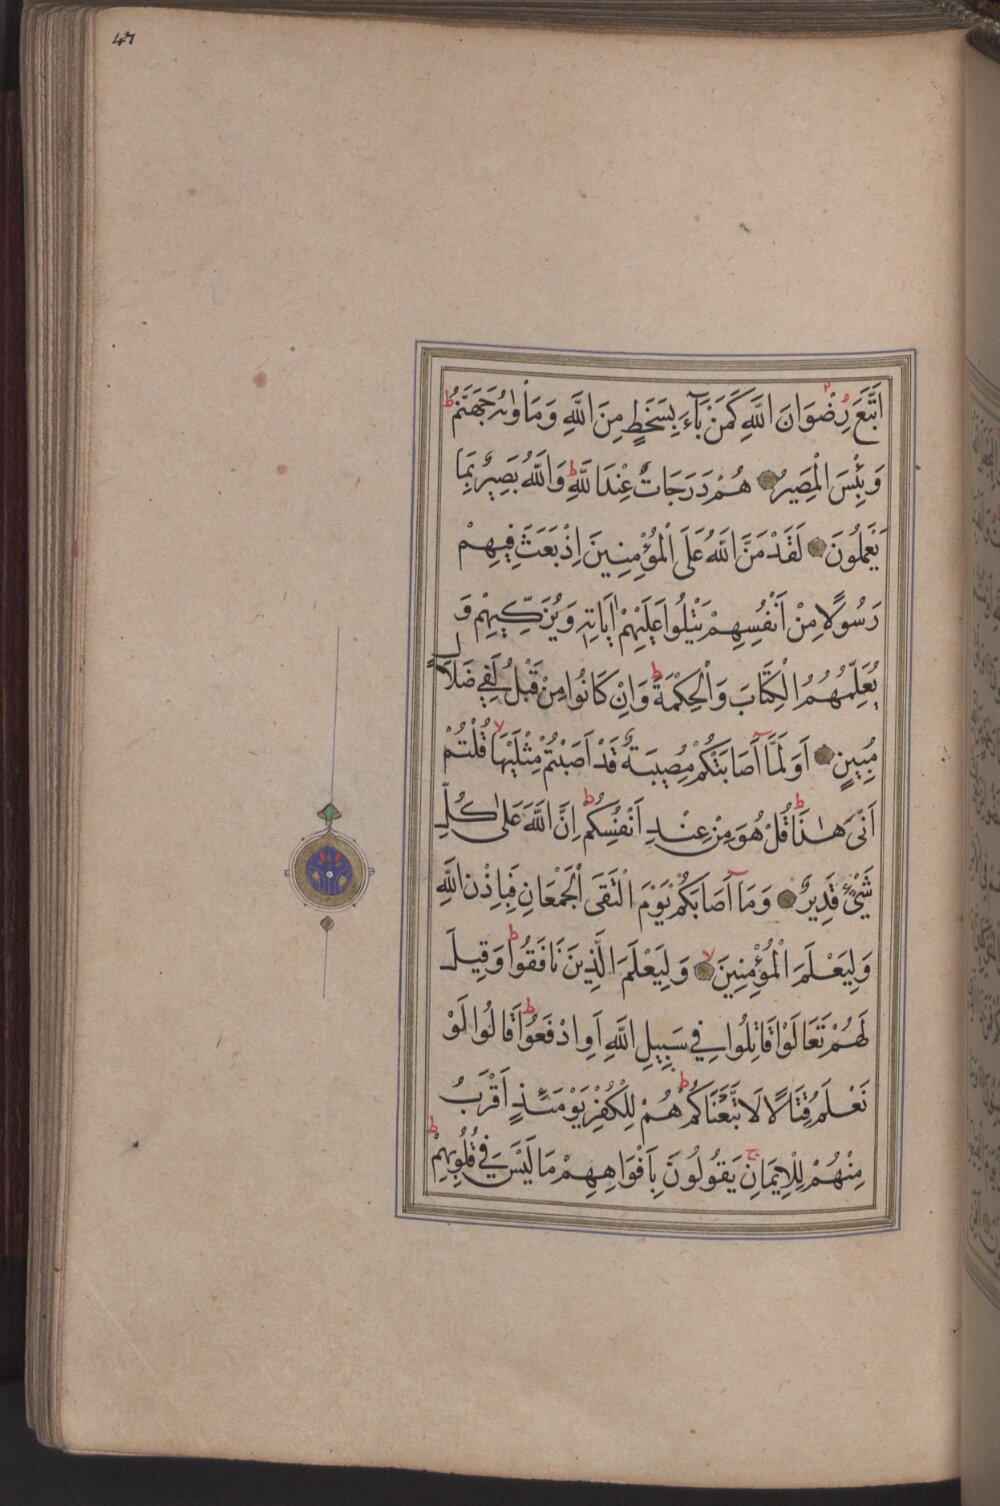 47
اتَّبَعَ رِضْوَانَ اللَّهِ كَمَنْ بَآءَ بِسَخَطٍ مِنَ اللَّهِ وَمَأْوٰىهُ جَهَنَّمُ ط
وَبِئْسَ الْمَصِيرُ ۝ هُمْ دَرَجَاتٌ عِنْدَ اللَّهِ ط وَاللَّهُ بَصِيرٌ بِمَا
يَعْمَلُونَ ۝ لَقَدْ مَنَّ اللَّهُ عَلَى الْمُؤْمِنِينَ اِذْ بَعَثَ فِيهِمْ
رَسُولًا مِنْ اَنْفُسِهِمْ يَتْلُوا عَلَيْهِمْ اٰيَاتِهِ وَيُزَكِّيهِمْ وَ
يُعَلِّمُهُمُ الْكِتَابَ وَالْحِكْمَةَ ط وَاِنْ كَانُوا مِنْ قَبْلُ لَفِي ضَلَالٍ
مُبِينٍ ۝ اَوَلَمَّآ اَصَابَتْكُمْ مُصِيبَةٌ قَدْ اَصَبْتُمْ مِثْلَيْهَا لا قُلْتُمْ
اَنّٰى هٰذَا ط قُلْ هُوَ مِنْ عِنْدِ اَنْفُسِكُمْ ط اِنَّ اللَّهَ عَلٰى كُلِّ
شَيْءٍ قَدِيرٌ ۝ وَمَآ اَصَابَكُمْ يَوْمَ الْتَقَى الْجَمْعَانِ فَبِاِذْنِ اللَّهِ
وَلِيَعْلَمَ الْمُؤْمِنِينَ لا ۝ وَلِيَعْلَمَ الَّذِينَ نَافَقُوا ط وَقِيلَ
لَهُمْ تَعَالَوْا قَاتِلُوا فِي سَبِيلِ اللَّهِ اَوِ ادْفَعُوا ط قَالُوا لَوْ
نَعْلَمُ قِتَالًا لَاتَّبَعْنَاكُمْ ط هُمْ لِلْكُفْرِ يَوْمَئِذٍ اَقْرَبُ
مِنْهُمْ لِلْاِيمَانِ ج يَقُولُونَ بِاَفْوَاهِهِمْ مَا لَيْسَ فِي قُلُوبِهِمْ ط